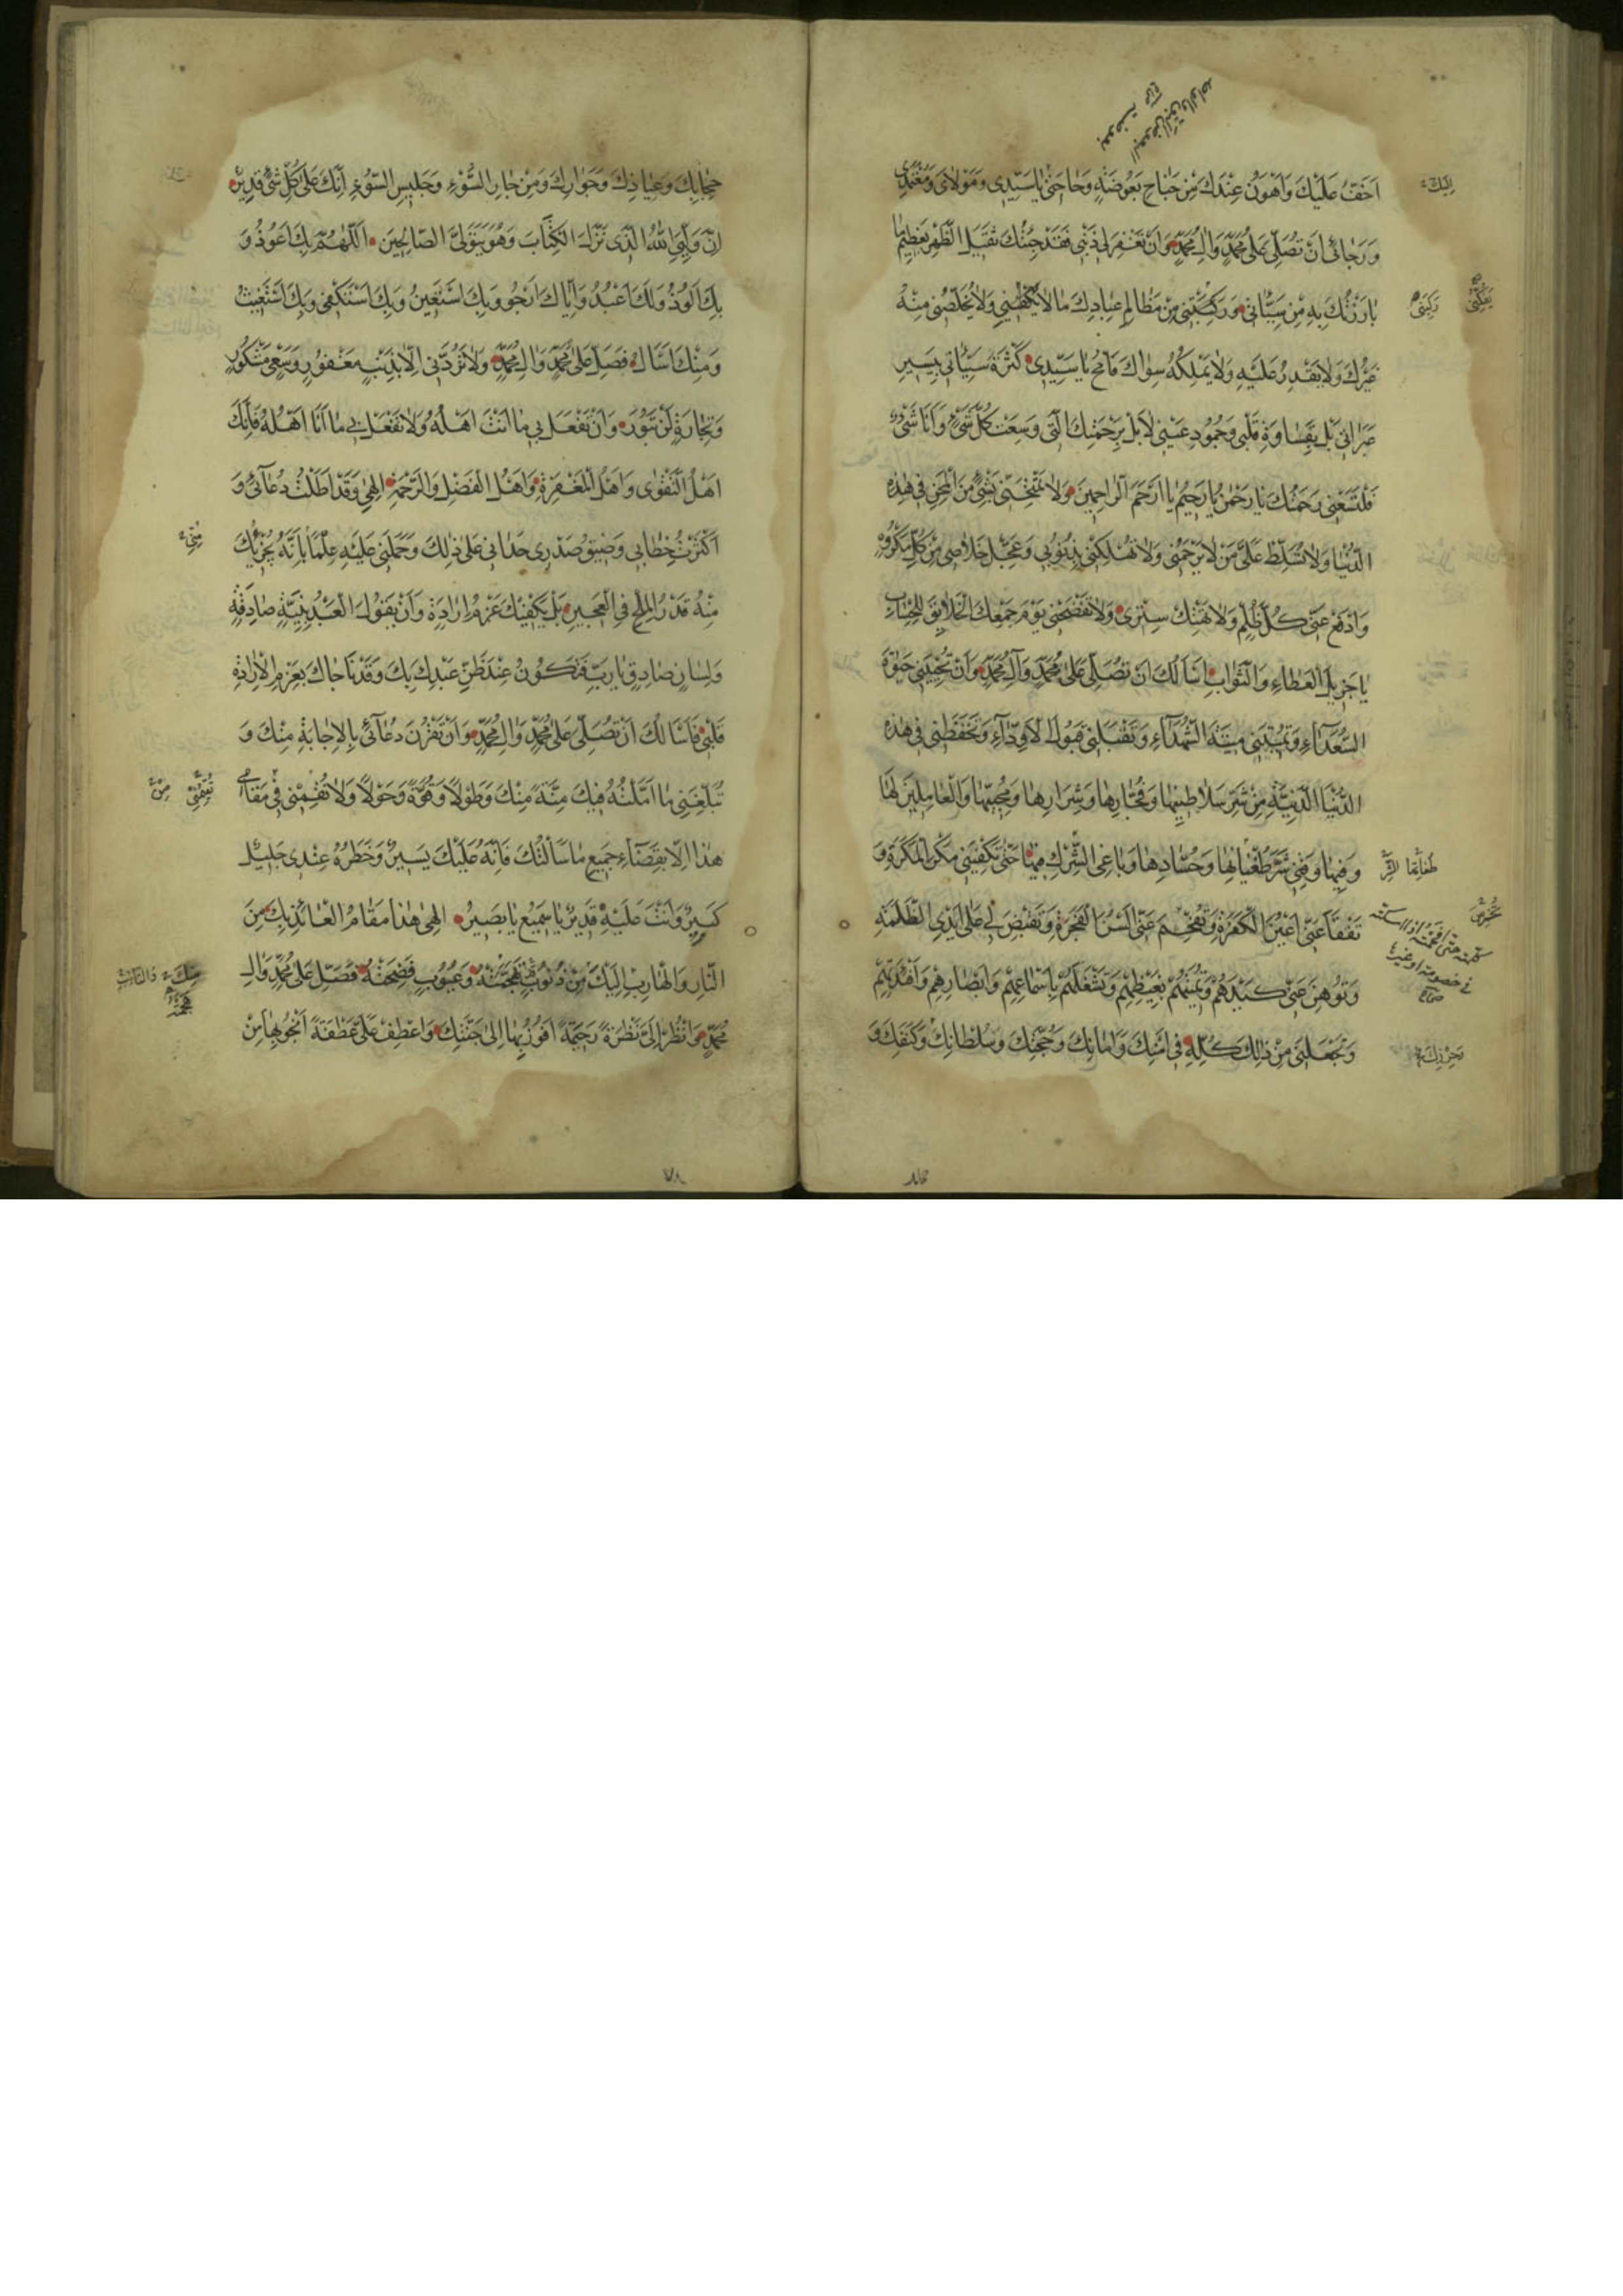 اَخَفُّ عَلَيْكَ وَاَهْوَنُ عِنْدَكَ مِنْ جَنَاحِ بَعُوضَةٍ وَحَاجَتِي يَا سَيِّدِي وَمَوْلَايَ وَمُعْتَمَدِي
وَرَجَائِي اَنْ تُصَلِّيَ عَلَى مُحَمَّدٍ وَآلِ مُحَمَّدٍ وَاَنْ تَغْفِرَ لِي ذَنْبِي فَقَدْ جِئْتُكَ ثَقِيلَ الظَّهْرِ بِعَظِيمِ مَا
بَارَزْتُكَ بِهِ مِنْ سَيِّئَاتِي وَرَكِبَتْنِي مِنْ مَظَالِمِ عِبَادِكَ مَا لَا يَكْفِينِي وَلَا يُخَلِّصُنِي مِنْهُ
غَيْرُكَ وَلَا يَقْدِرُ عَلَيْهِ وَلَا يَمْلِكُهُ سِوَاكَ فَامْحُ يَا سَيِّدِي كَثْرَةَ سَيِّئَاتِي بِيَسِيرِ
عَبَرَاتِي بَلْ بِقَسَاوَةِ قَلْبِي وَجُمُودِ عَيْنِي لَا بَلْ بِرَحْمَتِكَ الَّتِي وَسِعَتْ كُلَّ شَيْءٍ وَاَنَا شَيْءٌ
فَلْتَسَعْنِي رَحْمَتُكَ يَا رَحْمٰنُ يَا رَحِيمُ يَا اَرْحَمَ الرَّاحِمِينَ وَلَا تَمْتَحِنِّي بِشَيْءٍ مِنَ الْمِحَنِ فِي هٰذِهِ
الدُّنْيَا وَلَا تُسَلِّطْ عَلَيَّ مَنْ لَا يَرْحَمُنِي وَلَا تُهْلِكْنِي بِذُنُوبِي وَعَجِّلْ خَلَاصِي مِنْ كُلِّ مَكْرُوهٍ
وَادْفَعْ عَنِّي كُلَّ ظُلْمٍ وَلَا تَهْتِكْ سِتْرِي وَلَا تَفْضَحْنِي يَوْمَ جَمْعِكَ الْخَلَايِقَ لِلْحِسَابِ
يَا جَزِيلَ الْعَطَاءِ وَالثَّوَابِ اَسْاَلُكَ اَنْ تُصَلِّيَ عَلَى مُحَمَّدٍ وَآلِ مُحَمَّدٍ وَاَنْ تُحْيِيَنِي حَيٰوةَ
السُّعَدَاءِ وَتُمِيتَنِي مِيتَةَ الشُّهَدَاءِ وَتَقْبَلَنِي قَبُولَ الْاَوِدَّاءِ وَتَحْفَظَنِي فِي هٰذِهِ
الدُّنْيَا الدَّنِيَّةِ مِنْ شَرِّ سَلَاطِينِهَا وَفُجَّارِهَا وَشِرَارِهَا وَمُحِبِّيهَا وَالْعَامِلِينَ لَهَا
وَفِيهَا وَقِنِي شَرَّ طُغْيَانِهَا وَحُسَّادِهَا وَبَاغِي الشِّرْكِ فِيهَا حَتَّى تَكْفِيَنِي مَكْرَ الْمَكَرَةِ وَ
تَفْقَأَ عَنِّي اَعْيُنَ الْكَفَرَةِ وَتُفْحِمَ عَنِّي اَلْسُنَ الْفَجَرَةِ وَتَقْبِضَ لِي عَلَى اَيْدِي الظَّلَمَةِ
وَتُوهِنَ عَنِّي كَيْدَهُمْ وَتُمِيتَهُمْ بِغَيْظِهِمْ وَتَشْغَلَهُمْ بِاَسْمَاعِهِمْ وَاَبْصَارِهِمْ وَاَفْئِدَتِهِمْ
وَتَجْعَلَنِي مِنْ ذٰلِكَ كُلِّهِ فِي اَمْنِكَ وَاَمَانِكَ وَحُجَّتِكَ وَسُلْطَانِكَ وَكَنَفِكَ وَ
حِجَابِكَ وَعِيَاذِكَ وَجِوَارِكَ وَمِنْ جَارِ السُّوْءِ وَجَلِيسِ السُّوْءِ اِنَّكَ عَلَى كُلِّ شَيْءٍ قَدِيرٌ
اِنَّ وَلِيِّيَ اللهُ الَّذِي نَزَّلَ الْكِتَابَ وَهُوَ يَتَوَلَّى الصَّالِحِينَ اَللّٰهُمَّ بِكَ اَعُوذُ وَ
بِكَ اَلُوذُ وَلَكَ اَعْبُدُ وَاِيَّاكَ اَرْجُو وَبِكَ اَسْتَعِينُ وَبِكَ اَسْتَكْفِي وَبِكَ اَسْتَغِيثُ
وَمِنْكَ اَسْاَلُ فَصَلِّ عَلَى مُحَمَّدٍ وَآلِ مُحَمَّدٍ وَلَا تَرُدَّنِي اِلَّا بِذَنْبٍ مَغْفُورٍ وَسَعْيٍ مَشْكُورٍ
وَتِجَارَةٍ لَنْ تَبُورَ وَاَنْ تَفْعَلَ بِي مَا اَنْتَ اَهْلُهُ وَلَا تَفْعَلْ بِي مَا اَنَا اَهْلُهُ فَاِنَّكَ
اَهْلُ التَّقْوٰى وَاَهْلُ الْمَغْفِرَةِ وَاَهْلُ الْفَضْلِ وَالرَّحْمَةِ اِلٰهِي وَقَدْ اَطَلْتُ دُعَائِي وَ
اَكْثَرْتُ خِطَابِي وَضِيقُ صَدْرِي حَدَانِي عَلَى ذٰلِكَ وَحَمَلَنِي عَلَيْهِ عِلْمًا بِاَنَّهُ يُجْزِيكَ
مِنْهُ قَدْرُ الْمِلْحِ فِي الْعَجِينِ بَلْ يَكْفِيكَ عَزْمُ اِرَادَةٍ وَاَنْ يَقُولَ الْعَبْدُ بِنِيَّةٍ صَادِقَةٍ
وَلِسَانٍ صَادِقٍ يَا رَبِّ فَتَكُونُ عِنْدَ ظَنِّ عَبْدِكَ بِكَ وَقَدْ نَاجَاكَ بِعَزْمِ الْاِرَادَةِ
قَلْبِي فَاَسْاَلُكَ اَنْ تُصَلِّيَ عَلَى مُحَمَّدٍ وَآلِ مُحَمَّدٍ وَاَنْ تَقْرُنَ دُعَائِي بِالْاِجَابَةِ مِنْكَ وَ
تُبَلِّغَنِي مَا اَمَّلْتُهُ فِيكَ مِنَّةً مِنْكَ وَطَوْلًا وَقُوَّةً وَحَوْلًا وَلَا تُقِمْنِي فِي مَقَامِي
هٰذَا اِلَّا بِقَضَاءِ جَمِيعِ مَا سَاَلْتُكَ فَاِنَّهُ عَلَيْكَ يَسِيرٌ وَخَطَرُهُ عِنْدِي جَلِيلٌ
كَبِيرٌ وَاَنْتَ عَلَيْهِ قَدِيرٌ يَا سَمِيعُ يَا بَصِيرُ اِلٰهِي هٰذَا مَقَامُ الْعَائِذِ بِكَ مِنَ
النَّارِ وَالْهَارِبِ اِلَيْكَ مِنْ ذُنُوبٍ تَهَجَّمَتْهُ وَعُيُوبٍ فَضَحَتْهُ فَصَلِّ عَلَى مُحَمَّدٍ وَآلِ
مُحَمَّدٍ وَانْظُرْ اِلَيَّ نَظْرَةً رَحِيمَةً اَفُوزُ بِهَا اِلَى جَنَّتِكَ وَاعْطِفْ عَلَيَّ عَطْفَةً اَنْجُو بِهَا مِنْ
٧٨